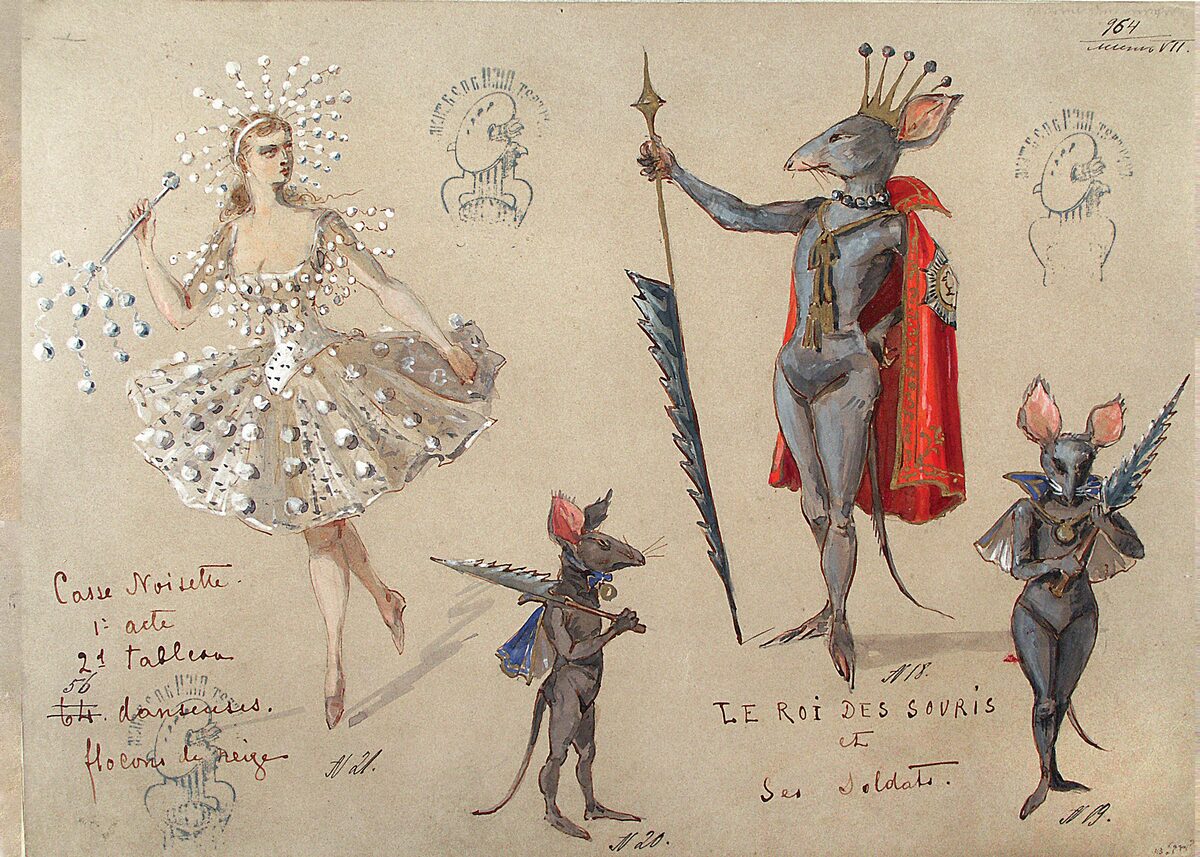 964
VII.
Casse Noisette.
1: acte
2d tableau
56
64. danseuses.
flocons de neige
N 21.
N 20.
N 18.
LE ROI DES SOURIS
et
Ses Soldats.
N 19.